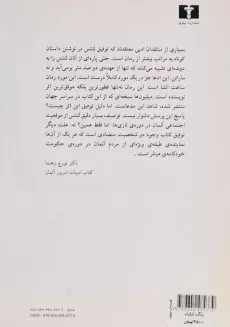 انتشارات نیلوفر
بسیاری از منتقدان ادبی معتقدند که توفیق لنتس در نوشتن داستان
کوتاه به مراتب بیشتر از رمان است. حتی پاره‌ای از آنان لنتس را به
دونده‌ای تشبیه می‌کنند که تنها از عهده‌ی دوِ صد متر برمی‌آید و نه
ماراتن. این ادعا جز در یک مورد کاملاً درست است. این مورد رمان
ساعت انشا است. این رمان نه‌تنها قطورترین بلکه موفق‌ترین اثر
نویسنده است. میلیون‌ها نسخه‌ای که از این کتاب در سراسر جهان
منتشر شده، شاهد این مدعاست. اما دلیل توفیق این اثر چیست؟
پاسخ این پرسش دشوار نیست. توصیف بسیار دقیق لنتس از موقعیت
اجتماعی آلمان در دوره‌ی نازی‌ها. اما فقط همین؟ نه. علت دیگر
توفیق کتاب وجود دو شخصیت متضادی است که هر یک از آن‌ها
نماینده‌ی طبقه‌ی ویژه‌ای از مردم آلمان در دوره‌ی حکومت
خودکامه‌ی هیتلر است.
دکتر تورج رهنما
کتاب ادبیات امروز آلمان
زنگ انشاء